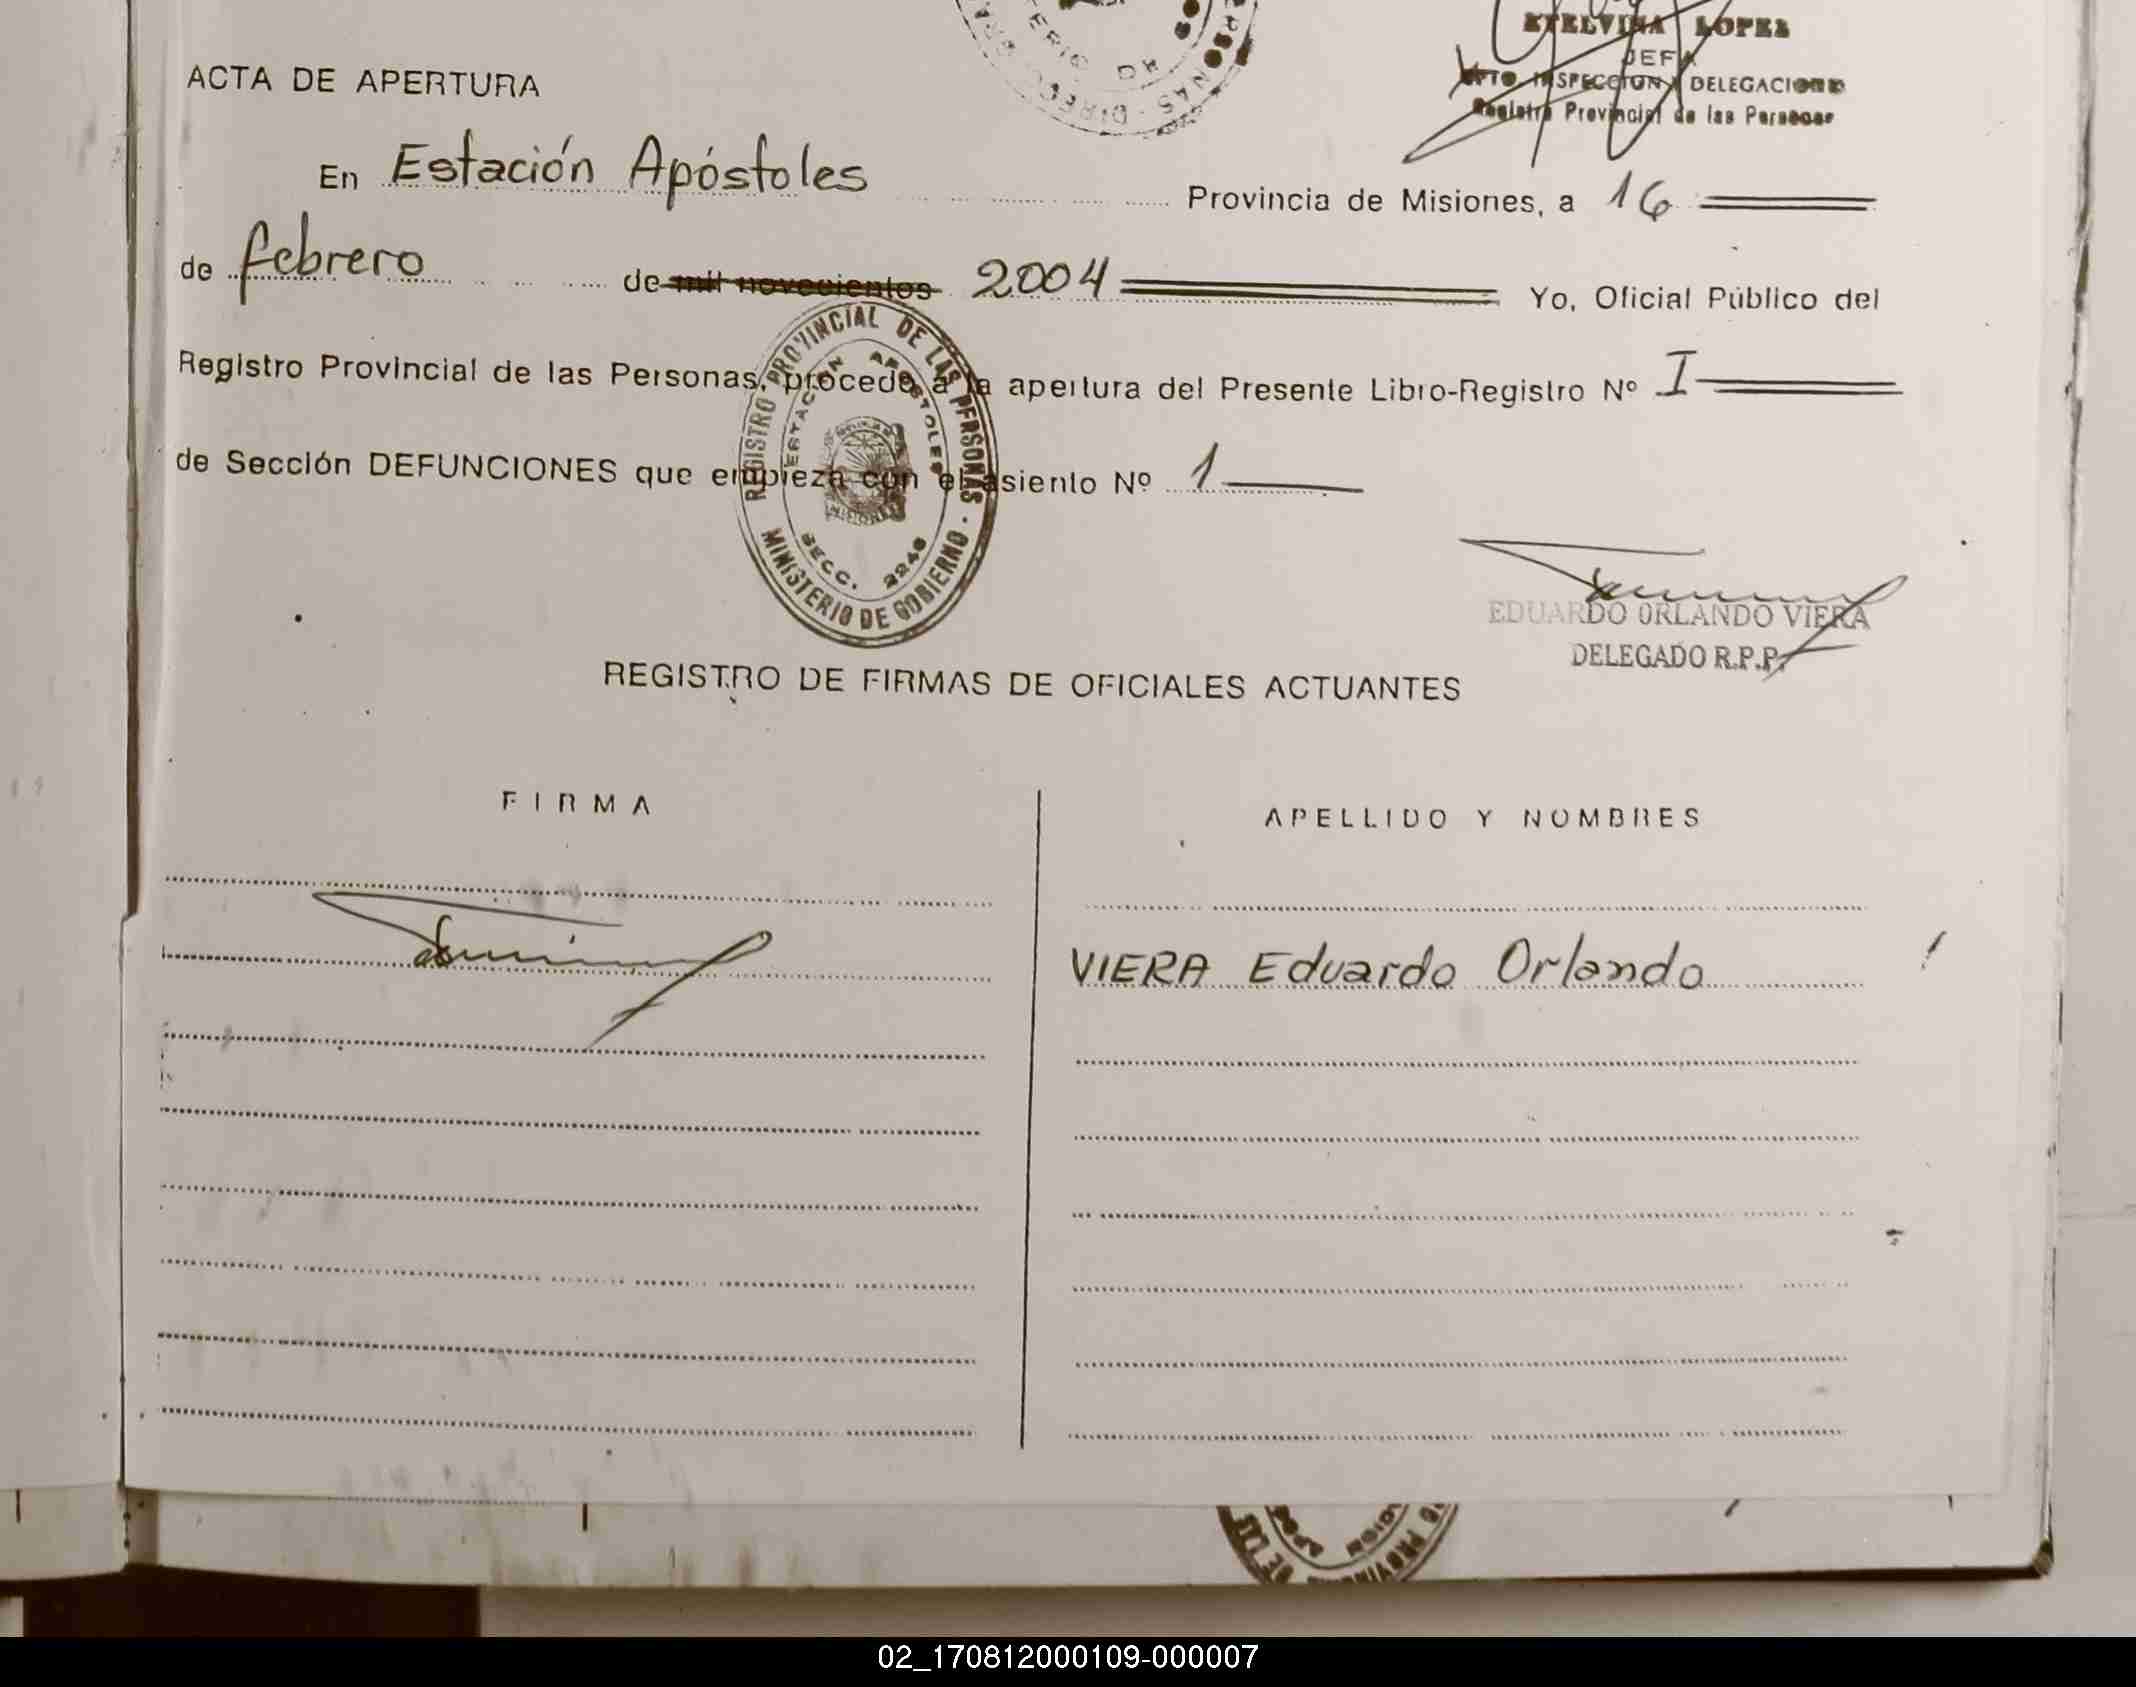 ETELVINA LOPEZ
JEFA
DPTO INSPECCION Y DELEGACIONES
Registro Provincial de las Personas
ACTA DE APERTURA
En Estación Apóstoles Provincia de Misiones, a 16
de febrero de mil novecientos 2004 Yo, Oficial Público del
Registro Provincial de las Personas, procedo a la apertura del Presente Libro-Registro Nº I
de Sección DEFUNCIONES que empieza con el asiento Nº 1
REGISTRO PROVINCIAL DE LAS PERSONAS
ESTACION APOSTOLES
MISIONES
SECC. 2246
MINISTERIO DE GOBIERNO
EDUARDO ORLANDO VIERA
DELEGADO R.P.P.
REGISTRO DE FIRMAS DE OFICIALES ACTUANTES
FIRMA APELLIDO Y NOMBRES
VIERA Eduardo Orlando
02_170812000109-000007